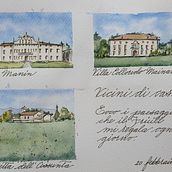 Manin
Villa Colloredo Mainar
Vicini di cas
Ecco i paesagg
che il Friuli
mi regala ogn
giorno.
etta dell'Assunta
20 febbrai